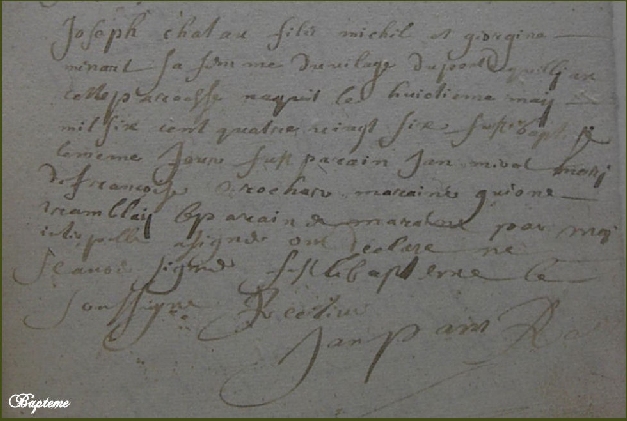 Joseph chatau fils michil et giorgine
minant sa femme du vilage du pond
cette parroesse naquit le huictieme may
mil six cent quatre veingt six fust bapt
le meme Jour fust parain Jan mary
de francoise rochar maraine guione
tramblay le parain par moy
asigne ont declare ne
scavoir signe fust le bapteme le
soussigne Recteur
Jan
Bapteme